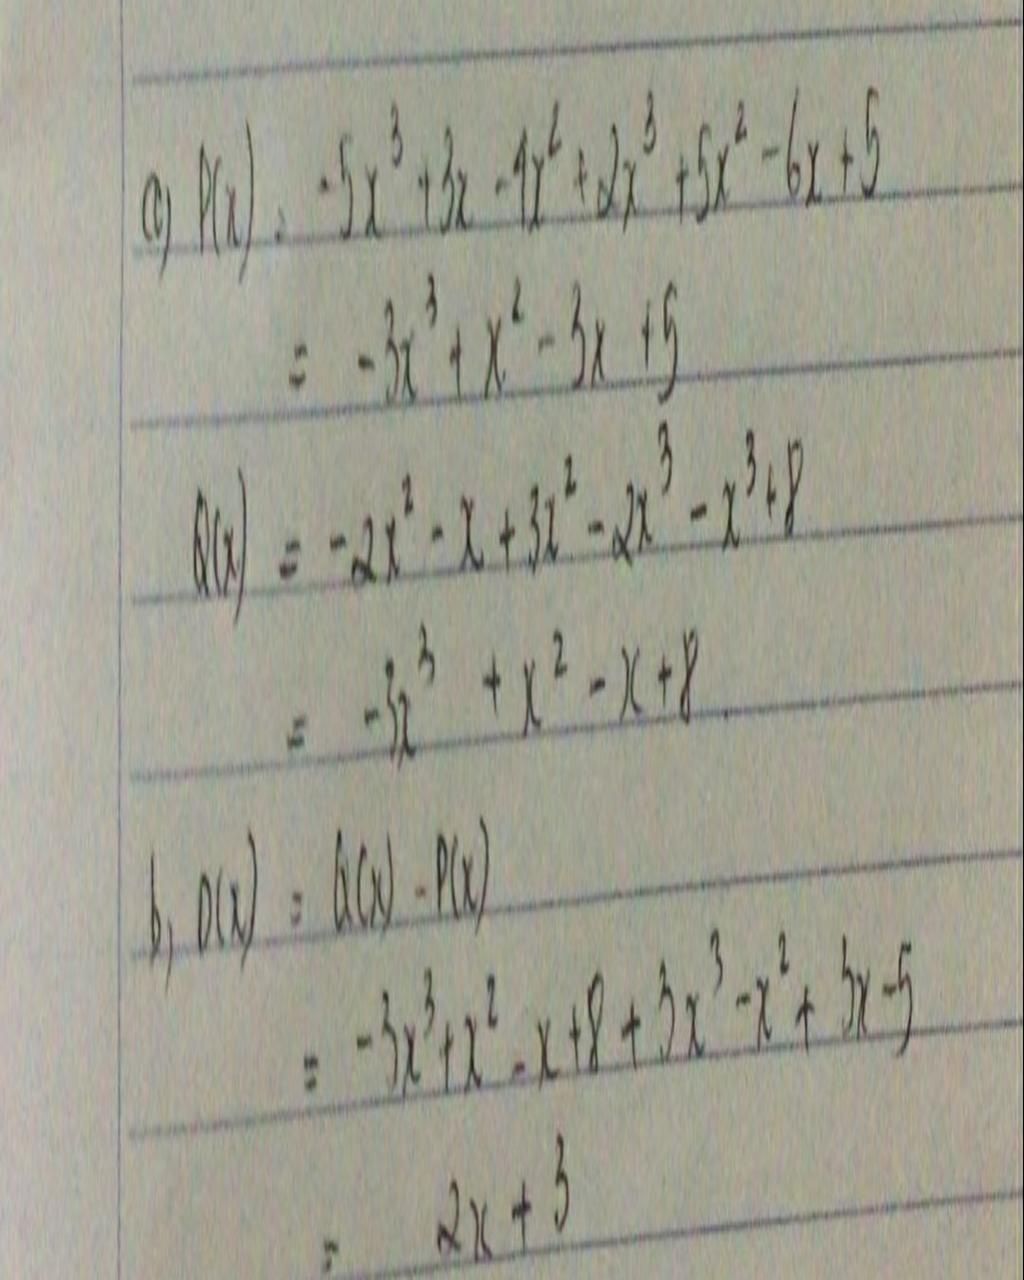 a) P(x) = -5x³ + 3x - 4x² + 2x³ + 5x² - 6x + 5
= -3x³ + x² - 3x + 5
Q(x) = -2x² - x + 3x² - 2x³ - x³ + 8
= -3x³ + x² - x + 8
b, D(x) = Q(x) - P(x)
= -3x³ + x² - x + 8 + 3x³ - x² + 3x - 5
= 2x + 3